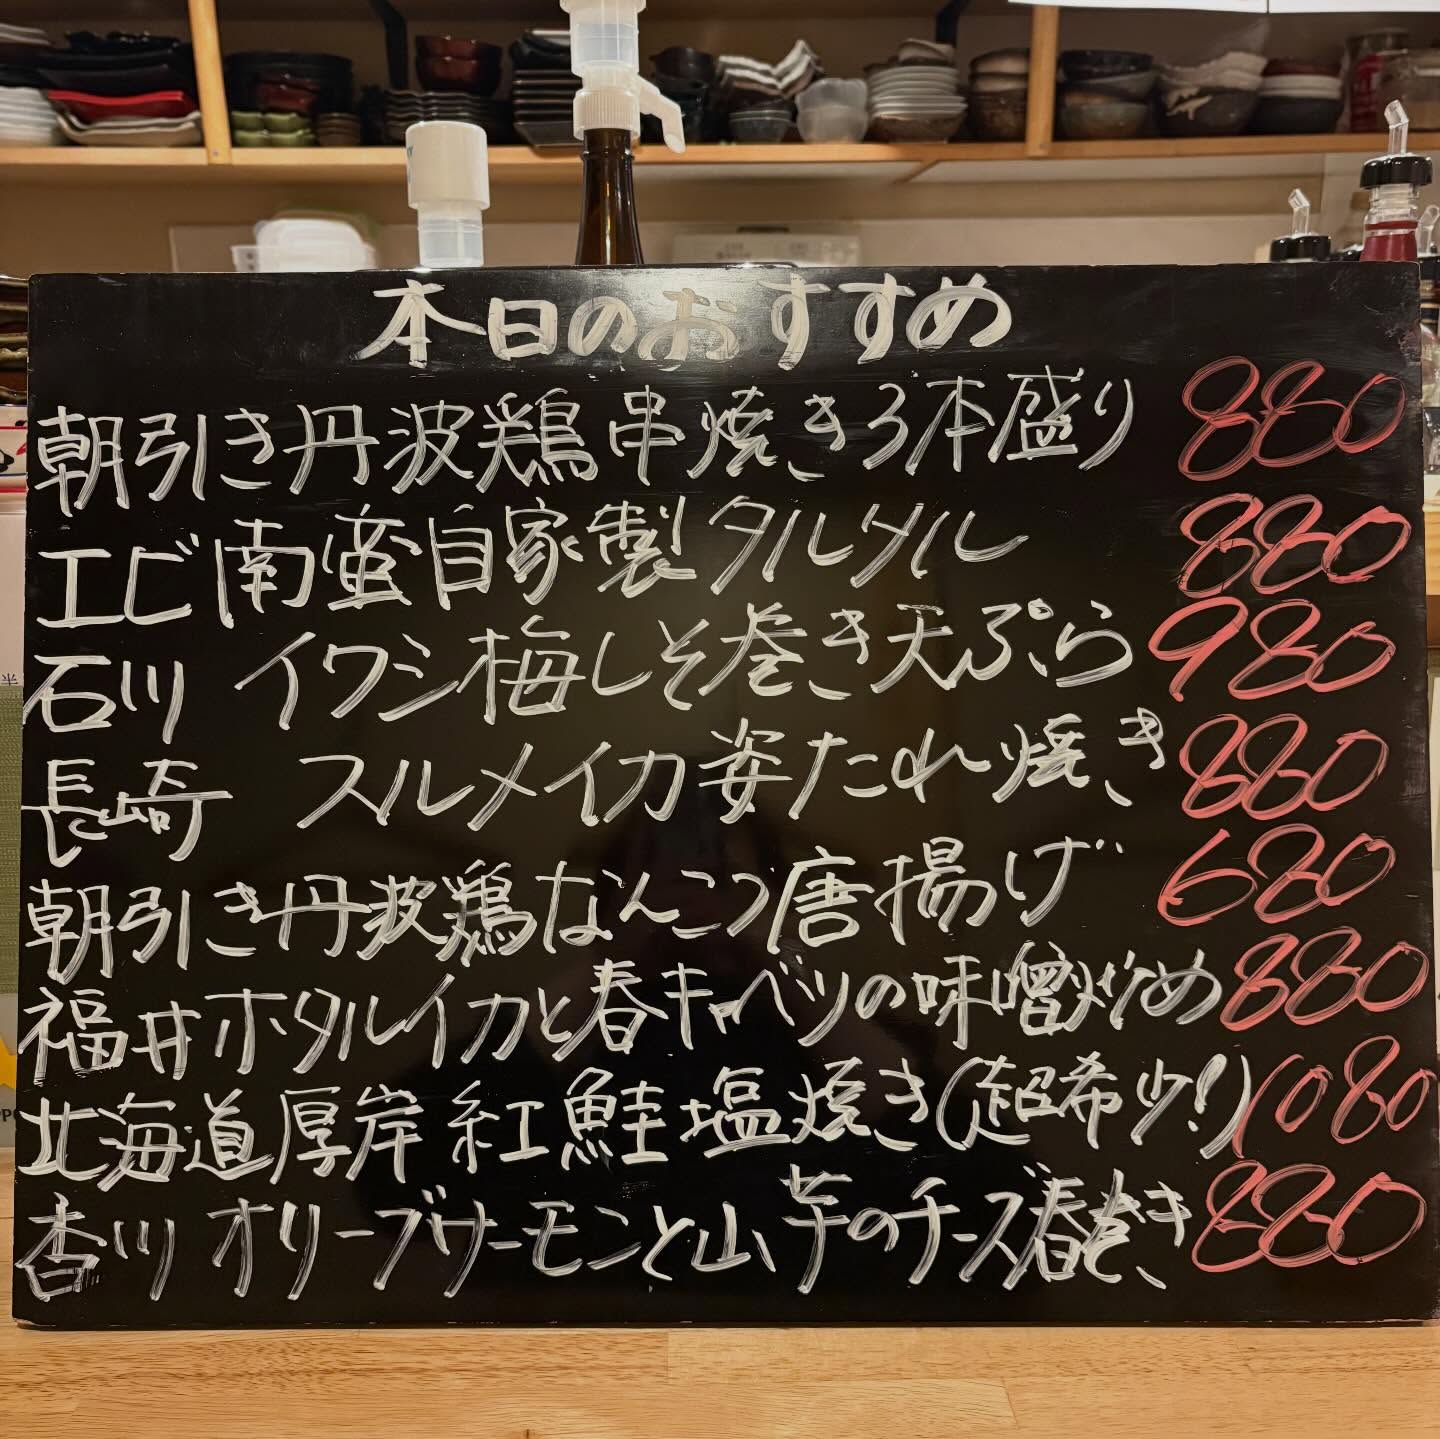 本日のおすすめ
朝引き丹波鶏串焼き3本盛り 880
エビ南蛮自家製タルタル 880
石川 イワシ梅しそ巻き天ぷら 980
長崎 スルメイカ姿たれ焼き 880
朝引き丹波鶏なんこつ唐揚げ 680
福井ホタルイカと春キャベツの味噌炒め 880
北海道厚岸紅鮭塩焼き(超希少!) 1080
香川 オリーブサーモンと山芋のチーズ春巻き 880